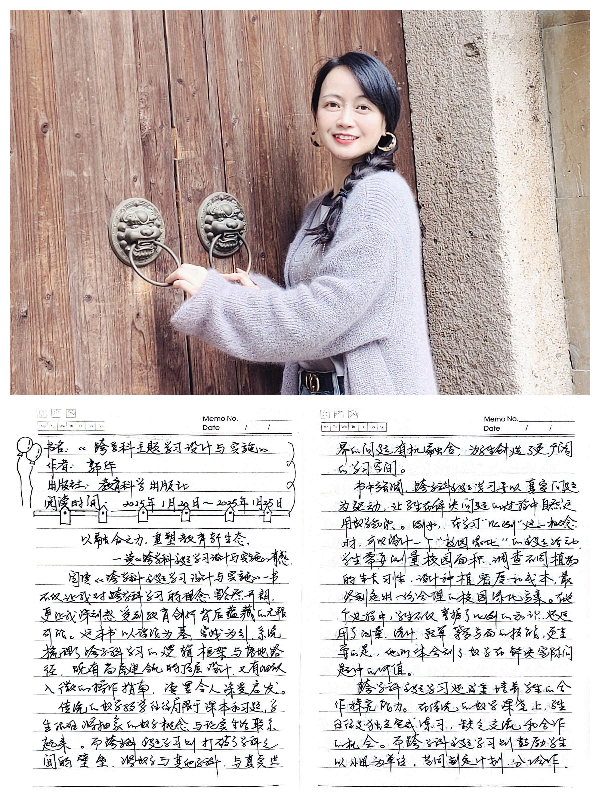 Memo No.
Date
书名：《跨学科主题学习设计与实施》
作者：郭华
出版社：教育科学出版社
阅读时间：2025年1月20日～2025年1月25日
以融合之力，重塑教育新生态
—读《跨学科主题学习设计与实施》有感
阅读《跨学科主题学习设计与实施》一书
不仅让我对跨学科学习的理念豁然开朗，
更让我深刻感受到教育创新背后蕴藏的无限
可能。这本书以理论为基，实践为引，系统
梳理了跨学科学习的逻辑框架与落地路
径，既有高屋建瓴的顶层设计，又有细致
入微的操作指南，读罢令人深受启发。
传统的数学教学往往局限于课本和习题，学
生不易将抽象的数学概念与现实生活联系
起来。而跨学科主题学习则打破了学科之
间的壁垒，将数学与其他学科、与真实世
Memo No.
Date
界的问题有机融合，为学生创造了更广阔
的学习空间。
书中强调，跨学科主题学习要以真实问题
为驱动，让学生在解决问题的过程中自然运
用数学知识。例如，在学习“比例”这一概念
时，可以设计一个“校园绿化”的主题活动
学生需要测量校园面积，调查不同植物
的生长习性，设计种植密度和成本，最
终制定出一份合理的校园绿化方案。在这
个过程中，学生不仅掌握了比例的知识，还运
用了测量、统计、预算等多方面的技能，更重
要的是，他们体会到了数学在解决实际问
题中的价值。
跨学科主题学习还注重培养学生的合
作探究能力。在传统的数学课堂上，学生
往往是独立完成练习，缺乏交流和合作
的机会。而跨学科主题学习则鼓励学生
以小组为单位，共同制定计划、分工合作